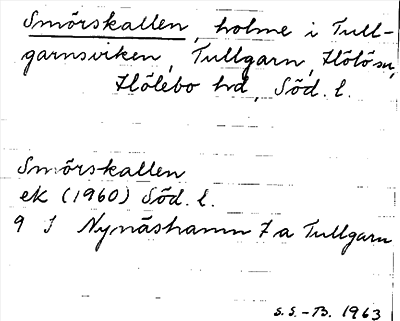 Smörskallen, holme i Tull-
garnsviken, Tullgarn, Hölö sn,
Hölebo hd, Söd. l.
Smörskallen
ek (1960) Söd. l.
9 I Nynäshamn 7 a Tullgarn
S.S.-B. 1963